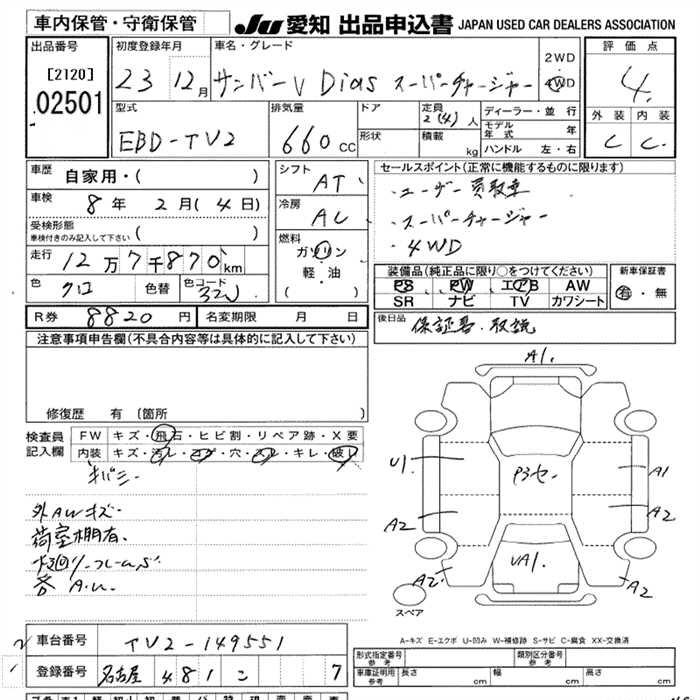 車内保管・守衛保管
JU 愛知 出品申込書 JAPAN USED CAR DEALERS ASSOCIATION
出品番号
[2120]
02501
初度登録年月
23 12月
車名・グレード
サンバーV Dias スーパーチャージャー
2WD
4WD
評価点
4
外装 内装
C C
型式
EBD-TV2
排気量
660 CC
ドア
形状
定員
2(4)人
積載 kg
ディーラー・並行
モデル年式 年
ハンドル 左・右
車歴 自家用・( )
車検 8年 2月(4日)
受検形態
車検付きのみ記入して下さい ( )
走行 12万7千870 km
色 クロ 色替 色コード 32J
シフト AT
冷房 AC
燃料
ガソリン
軽・油
( )
セールスポイント(正常に機能するものに限ります)
・ユーザー買取車
・スーパーチャージャー
・4WD
装備品(純正品に限り○をつけてください)
PS PW エアB AW
SR ナビ TV カワシート
新車保証書
有・無
R券 8820円 名変期限 月 日
後日品 保証書・取説
注意事項申告欄(不具合内容等は具体的に記入して下さい)
修復歴 有 〔箇所
検査員
記入欄
FW キズ・飛石・ヒビ割・リペア跡・X要
内装 キズ・汚レ・コゲ・穴・スレ・キレ・破レ
外AWキズ・
荷室棚有、
A1.
U1
P3セ-
A1
A2
A2
UA1.
A2
A2
スペア
A-キズ E-エクボ U-凹み W-補修跡 S-サビ C-腐食 XX-交換済
車台番号 TV2-149551
登録番号 名古屋 481 こ 7
形式指定番号
参考
類別区分番号
参考
車庫証明用
参考
長さ cm 幅 cm 高さ cm